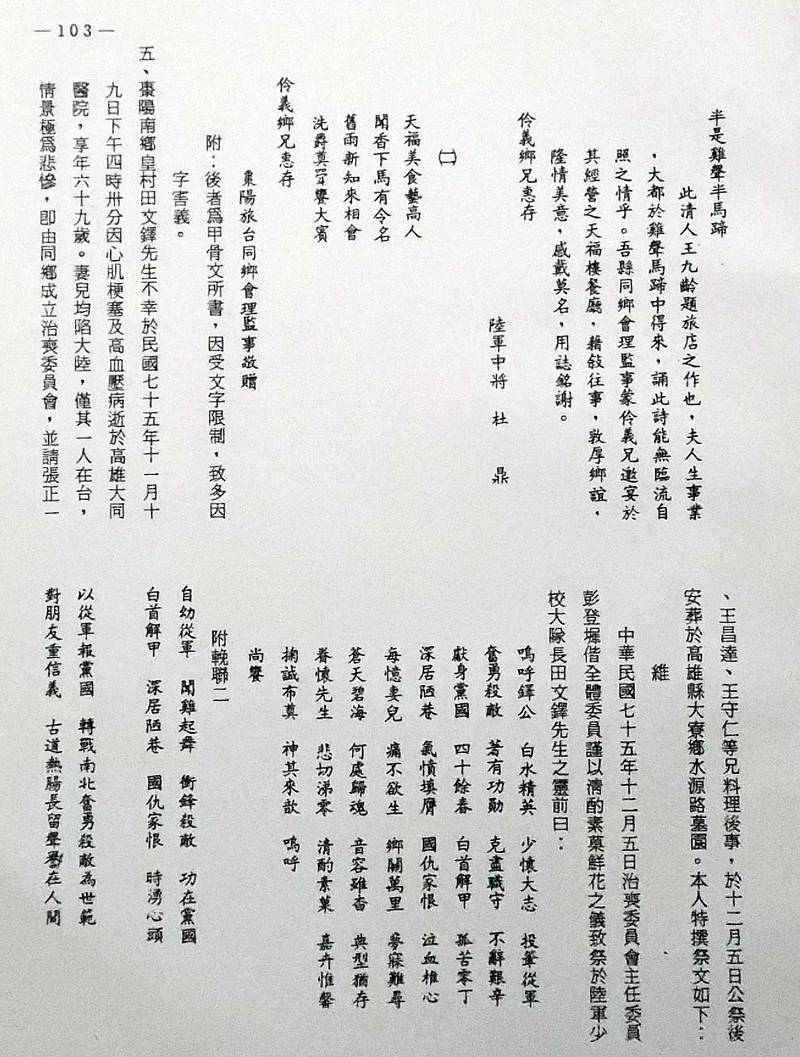 —103—
半是雞聲半馬蹄
此清人王九齡題旅店之作也，夫人生事業
，大都於雞聲馬蹄中得來，誦此詩能無臨流自
照之情乎。吾縣同鄉會理監事蒙伶義兄邀宴於
其經營之天福樓餐廳，藉敍往事，敦厚鄉誼，
隆情美意，感戴莫名，用誌銘謝。
伶義鄉兄惠存
陸軍中將 杜 鼎
㈡
天福美食藝高人
聞香下馬有令名
舊雨新知來相會
洗爵奠斝饗大賓
伶義鄉兄惠存
棗陽旅台同鄉會理監事敬贈
附：後者爲甲骨文所書，因受文字限制，致多因
字害義。
五、棗陽南鄉皇村田文鐸先生不幸於民國七十五年十一月十
九日下午四時卅分因心肌梗塞及高血壓病逝於高雄大同
醫院，享年六十九歲。妻兒均陷大陸，僅其一人在台，
情景極爲悲慘，即由同鄉成立治喪委員會，並請張正一
、王昌達、王守仁等兄料理後事，於十二月五日公祭後
安葬於高雄縣大寮鄉水源路墓園。本人特撰祭文如下：
維
中華民國七十五年十二月五日治喪委員會主任委員
彭登墀偕全體委員謹以清酌素菓鮮花之儀致祭於陸軍少
校大隊長田文鐸先生之靈前曰：
嗚呼鐸公 白水精英 少懷大志 投筆從軍
奮勇殺敵 著有功勛 克盡職守 不辭艱辛
獻身黨國 四十餘春 白首解甲 孤苦零丁
深居陋巷 氣憤填膺 國仇家恨 泣血椎心
每憶妻兒 痛不欲生 鄉關萬里 夢寐難尋
蒼天碧海 何處歸魂 音容雖杳 典型猶存
眷懷先生 悲切涕零 清酌素菓 嘉卉惟馨
掬誠布奠 神其來歆 嗚呼
尚饗
附輓聯二
自幼從軍 聞雞起舞 衝鋒殺敵 功在黨國
白首解甲 深居陋巷 國仇家恨 時湧心頭
以從軍報黨國 轉戰南北奮勇殺敵為世範
對朋友重信義 古道熱腸長留聲譽在人間